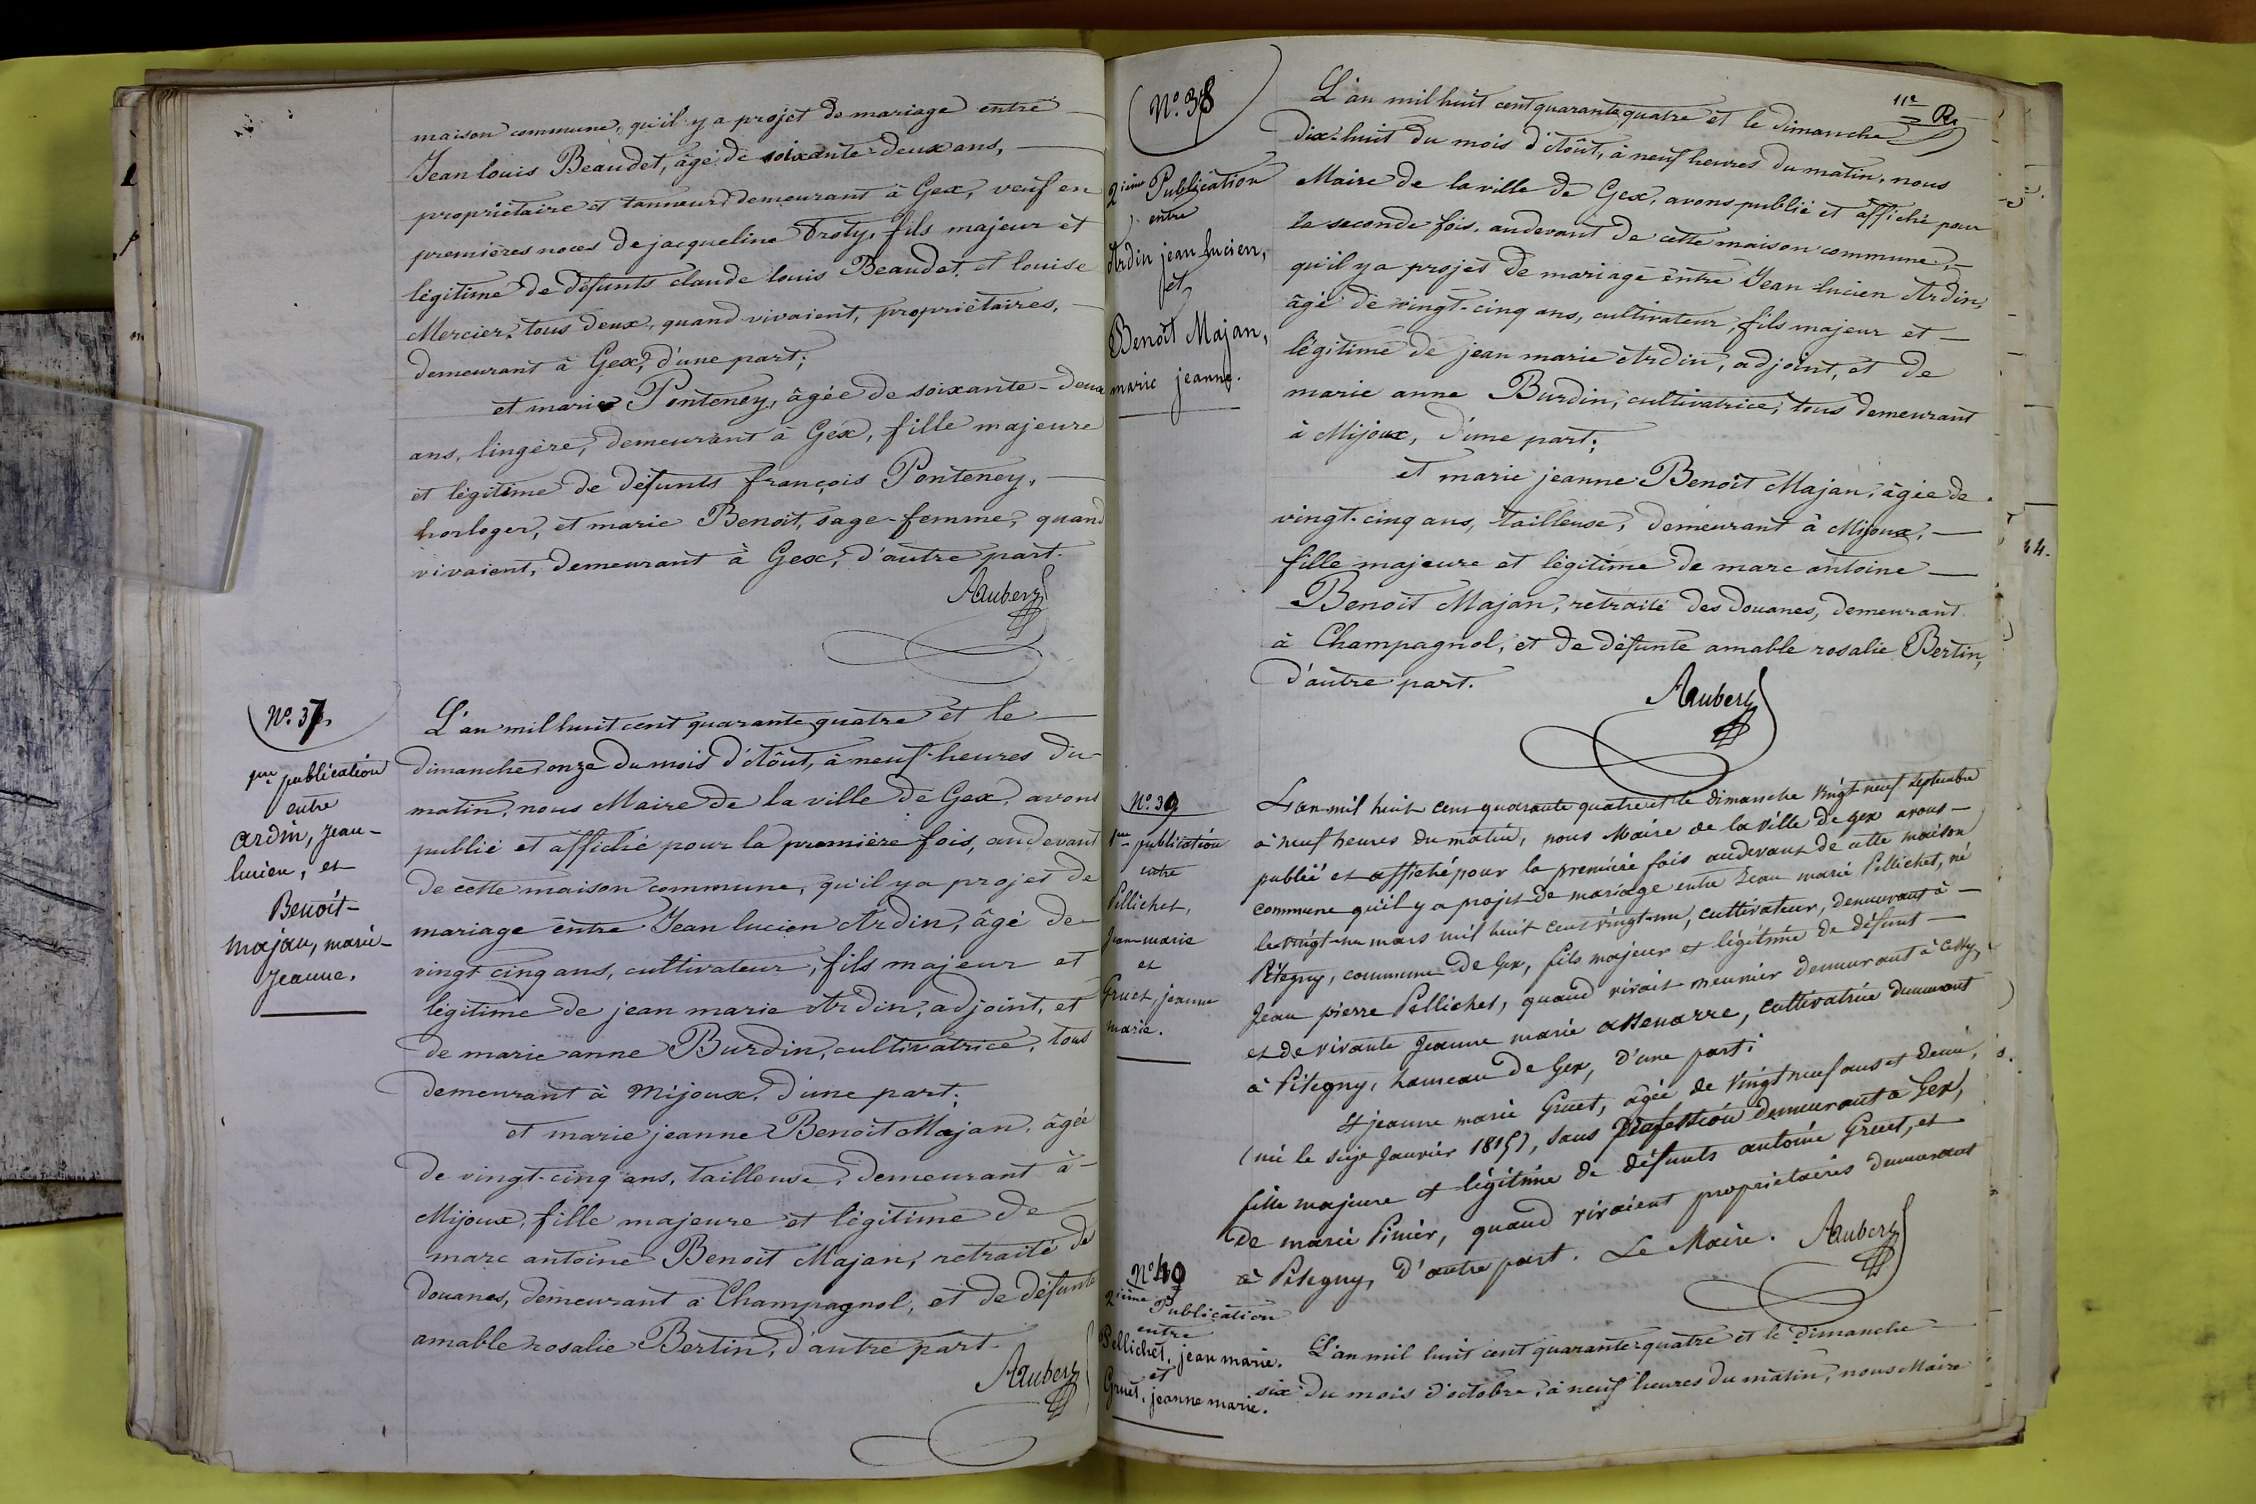 maison commune, qu'il y a projet de mariage entre
Jean louis Beaudet, âgé de soixante-deux ans,
propriétaire et tanneur, demeurant à Gex, veuf en
premières noces de jacqueline Troty, fils majeur et
légitime de défunts claude louis Beaudet, et louise
Mercier, tous deux, quand vivaient, propriétaires,
demeurant à Gex, d'une part;
et marie Ponteney, âgée de soixante-deux
ans, lingère, demeurant à Gex, fille majeure
et légitime de défunts françois Ponteney,
horloger, et marie Benoit, sage-femme, quand
vivaient, demeurant à Gex, d'autre part.
AAubery
No. 37.
1ere publication
entre
Ardin, Jean-
lucien, et
Benoit-
Majan, marie-
Jeanne.
L'an mil huit cent quarante quatre et le
dimanche onze du mois d'Aôut, à neuf heures du
matin, nous Maire de la ville de Gex, avons
publié et affiché pour la première fois, audevant
de cette maison commune, qu'il y a projet de
mariage entre Jean lucien Ardin, âgé de
vingt cinq ans, cultivateur, fils majeur et
légitime de jean marie Ardin, adjoint, et
de marie anne Burdin, cultivatrice, tous
demeurant à Mijoux, d'une part;
et marie jeanne Benoit Majan, âgée
de vingt-cinq ans, tailleuse, demeurant à
Mijoux, fille majeure et légitime de
marc antoine Benoit Majan, retraité de
douanes, demeurant à Champagnol, et de défunte
amable rosalie Bertin, d'autre part.
AAubery
No. 38
2ième Publication
entre
Ardin jean lucien,
et
Benoit Majan,
marie jeanne.
112
L'an mil huit cent quarante quatre et le dimanche
dix-huit du mois d'Aôut, à neuf heures du matin, nous
Maire de la ville de Gex, avons publié et affiché pour
la seconde fois, audevant de cette maison commune,
qu'il y a projet de mariage entre Jean lucien Ardin,
âgé de vingt-cinq ans, cultivateur, fils majeur et
légitime de jean marie Ardin, adjoint, et de
marie anne Burdin, cultivatrice, tous demeurant
à Mijoux, d'une part;
et marie jeanne Benoit Majan, âgée de
vingt-cinq ans, tailleuse, demeurant à Mijoux,
fille majeure et légitime de marc antoine
Benoit Majan, retraité des douanes, demeurant
à Champagnol, et de défunte amable rosalie Bertin,
d'autre part.
AAubery
No. 39
1ere publication
entre
Pellichet,
Jean-marie
et
Gruet, jeanne
marie.
L'an mil huit cent quarante quatre et le dimanche vingt neuf septembre
à neuf heures du matin, nous Maire de la ville de gex avons
publié et affiché pour la première fois audevant de cette maison
commune qu'il y a projet de mariage entre Jean marie Pellichet, né
le vingt-un mars mil huit cent vingt-un, cultivateur, demeurant à
Pitegny, commune de Gex, fils majeur et légitime de défunt
Jean pierre Pellichet, quand vivait meunier demeurant à Cessy,
et de vivante Jeanne marie Assenarre, cultivatrice demeurant
à Pitegny, hameau de Gex, d'une part;
Et jeanne marie Gruet, âgée de vingt neuf ans et demi,
(née le sixe Janvier 1815), sans profession demeurant à Gex,
fille majeure et légitime de défunts antoine Gruet, et
de marie Pinier, quand vivaient propriétaires demeurant
à Pitegny, d'autre part. Le Maire. AAubery
No. 40
2ième Publication
entre
Pellichet, jean marie.
et
Gruet, jeanne marie.
L'an mil huit cent quarante-quatre et le dimanche
six du mois d'octobre, à neuf heures du matin, nous Maire